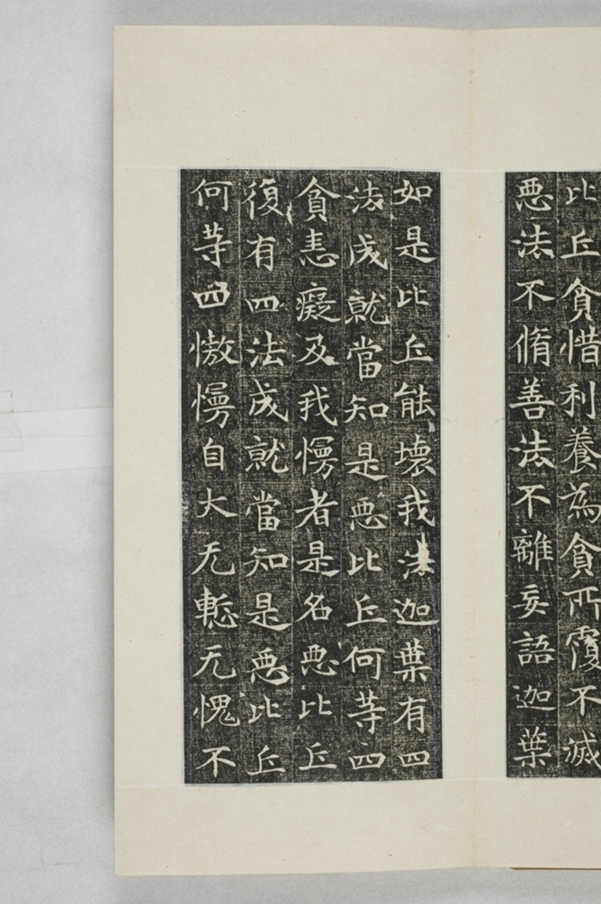 比丘貪惜利養為貪所覆不滅
悪法不脩善法不離妄語迦葉
如是比丘能壞我法迦葉有四
法成就當知是悪比丘何等四
貪恚癡及我慢者是名悪比丘
復有四法成就當知是悪比丘
何等四憿慢自大无慙无愧不